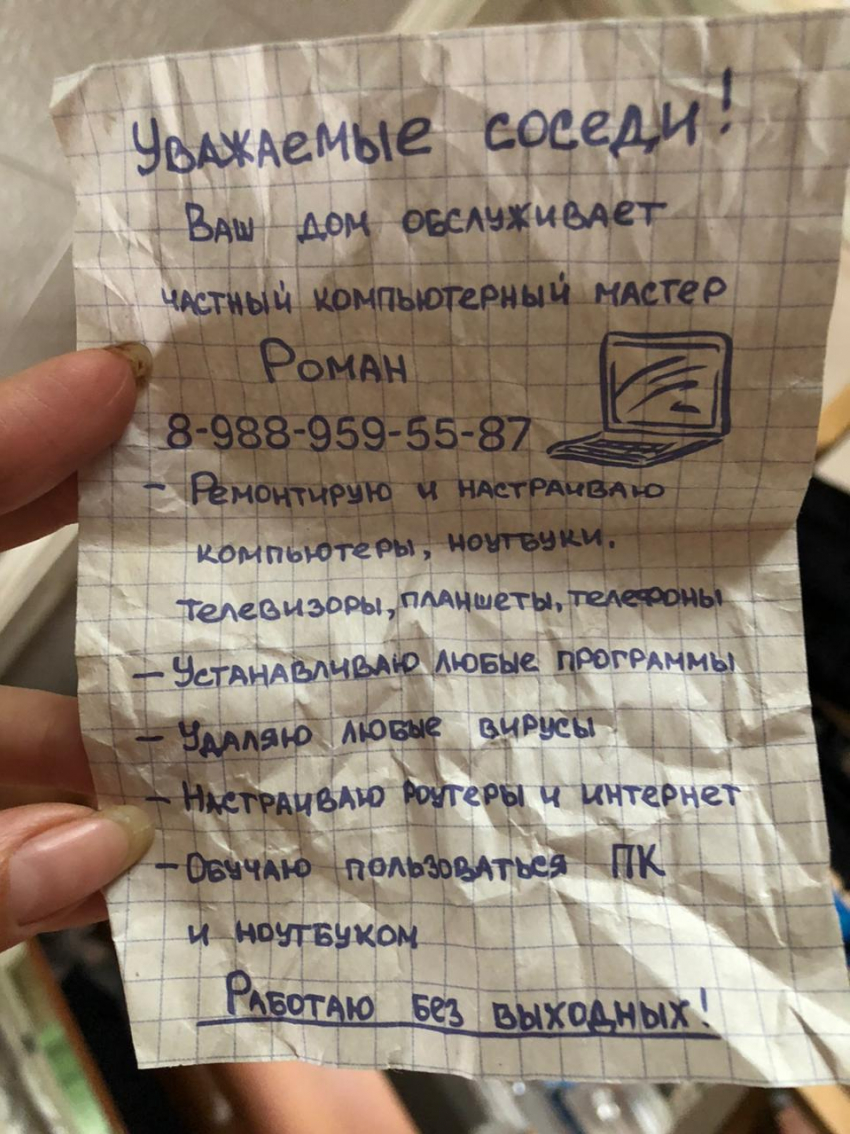 Уважаемые соседи!
Ваш дом обслуживает
частный компьютерный мастер
Роман
8-988-959-55-87
- Ремонтирую и настраиваю
компьютеры, ноутбуки.
телевизоры, планшеты, телефоны
- Устанавливаю любые программы
- Удаляю любые вирусы
- Настраиваю роутеры и интернет
- Обучаю пользоваться ПК
и ноутбуком
Работаю без выходных!